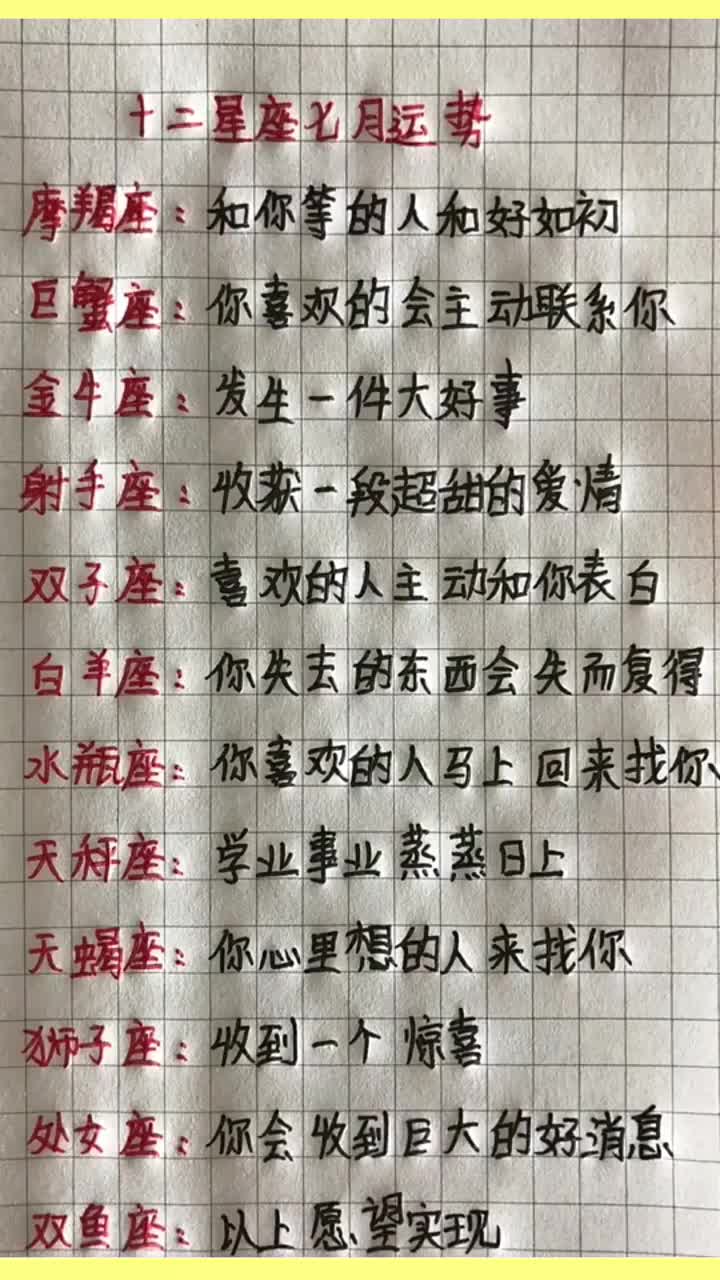 十二星座七月运势
摩羯座：和你等的人和好如初
巨蟹座：你喜欢的会主动联系你
金牛座：发生一件大好事
射手座：收获一段超甜的爱情
双子座：喜欢的人主动和你表白
白羊座：你失去的东西会失而复得
水瓶座：你喜欢的人马上回来找你
天秤座：学业事业蒸蒸日上
天蝎座：你心里想的人来找你
狮子座：收到一个惊喜
处女座：你会收到巨大的好消息
双鱼座：以上愿望实现